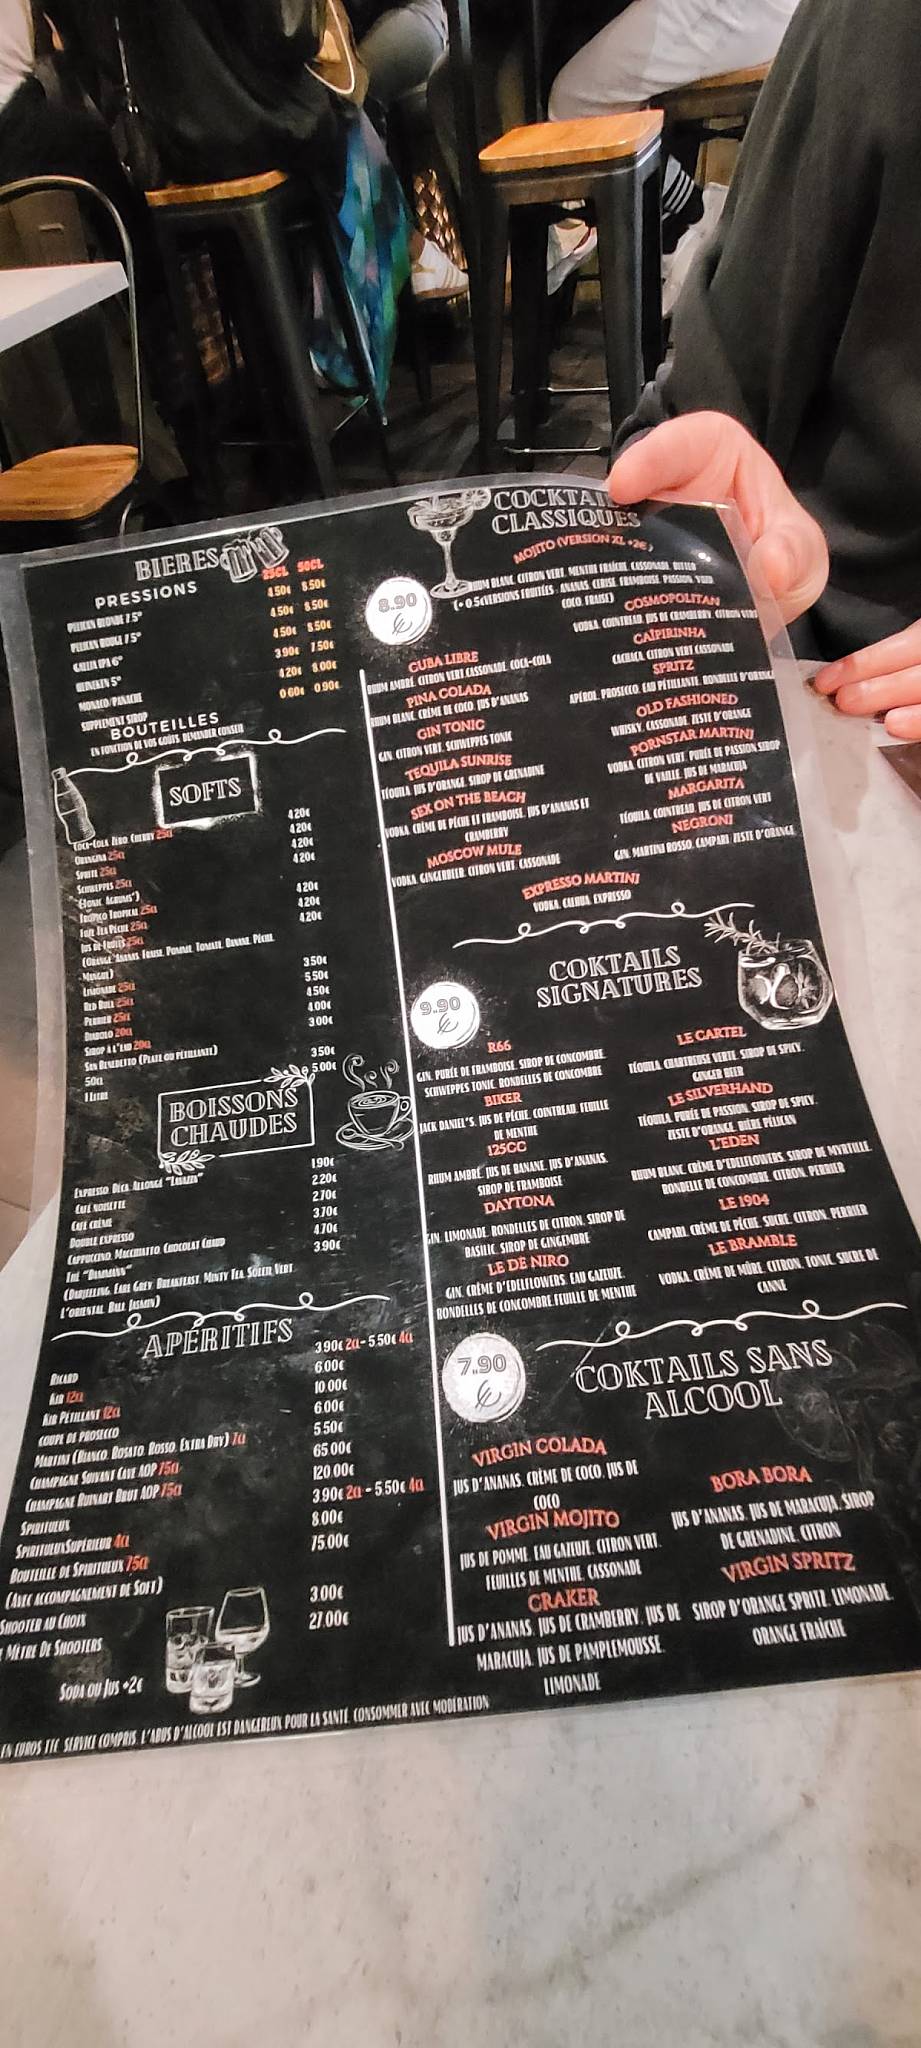 BIERES
PRESSIONS
25CL 50CL
PELICAN BLONDE 7.5° 4.50€ 8.50€
PELICAN ROUGE 7.5° 4.50€ 8.50€
GALLIA IPA 6° 4.50€ 8.50€
HEINEKEN 5° 3.90€ 7.50€
MONACO/PANACHE 4.20€ 8.00€
SUPPLEMENT SIROP 0.60€ 0.90€
BOUTEILLES
EN FONCTION DE VOS GOÛTS, DEMANDER CONSEIL
SOFTS
COCA-COLA, ZERO, CHERRY 25CL 4.20€
ORANGINA 25CL 4.20€
SPRITE 25CL 4.20€
SCHWEPPES 25CL 4.20€
(TONIC, AGRUMS")
TROPICO TROPICAL 25CL 4.20€
FUZE TEA PÊCHE 25CL 4.20€
JUS DE FRUITS 25CL 4.20€
(ORANGE, ANANAS, FRAISE, POMME, TOMATE, BANANE, PÊCHE,
MANGUE)
LIMONADE 25CL 3.50€
RED BULL 25CL 5.50€
PERRIER 25CL 4.50€
DIABOLO 20CL 4.00€
SIROP À L'EAU 20CL 3.00€
SAN BENEDETTO (PLATE OU PÉTILLANTE)
50CL 3.50€
1 LITRE 5.00€
BOISSONS
CHAUDES
EXPRESSO, DÉCA, ALLONGÉ "LAVAZZA" 1.90€
CAFÉ NOISETTE 2.20€
CAFÉ CRÈME 2.70€
DOUBLE EXPRESSO 3.70€
CAPPUCCINO, MACCHIATTO, CHOCOLAT CHAUD 4.70€
THÉ "DAMMANN" 3.90€
(DARJEELING, EARL GREY, BREAKFAST, MINTY TEA, SOLEIL VERT
L'ORIENTAL, BALI, JASMIN)
APÉRITIFS
RICARD 3.90€ 2CL - 5.50€ 4CL
KIR 12CL 6.00€
KIR PÉTILLANT 12CL 10.00€
COUPE DE PROSECCO 6.00€
MARTINI (BIANCO, ROSATO, ROSSO, EXTRA DRY) 7CL 5.50€
CHAMPAGNE SUIVANT CAVE AOP 75CL 65.00€
CHAMPAGNE RUINART BRUT AOP 75CL 120.00€
SPIRITUEUX 3.90€ 2CL - 5.50€ 4CL
SPIRITUEUX SUPÉRIEUR 4CL 8.00€
BOUTEILLE DE SPIRITUEUX 75CL 75.00€
(AVEC ACCOMPAGNEMENT DE SOFT)
SHOOTER AU CHOIX 3.00€
MÈTRE DE SHOOTERS 27.00€
SODA OU JUS +2€
COCKTAI
CLASSIQUES
8.90
€
MOJITO (VERSION XL +2€)
RHUM BLANC, CITRON VERT, MENTHE FRAÎCHE, CASSONADE, BITTER
(+ 0.5€ VERSIONS FRUITÉES : ANANAS, CERISE, FRAMBOISE, PASSION, YUZU
COCO, FRAISE)
CUBA LIBRE
RHUM AMBRÉ, CITRON VERT, CASSONADE, COCA-COLA
PINA COLADA
RHUM BLANC, CRÈME DE COCO, JUS D'ANANAS
GIN TONIC
GIN, CITRON VERT, SCHWEPPES TONIC
TEQUILA SUNRISE
TÉQUILA, JUS D'ORANGE, SIROP DE GRENADINE
SEX ON THE BEACH
VODKA, CRÈME DE PÊCHE ET FRAMBOISE, JUS D'ANANAS ET
CRAMBERRY
MOSCOW MULE
VODKA, GINGERBEER, CITRON VERT, CASSONADE
COSMOPOLITAN
VODKA, COINTREAU, JUS DE CRAMBERRY, CITRON VERT
CAÏPIRINHA
CACHACA, CITRON VERT, CASSONADE
SPRITZ
APÉROL, PROSECCO, EAU PÉTILLANTE, RONDELLE D'ORANGE
OLD FASHIONED
WHISKY, CASSONADE, ZESTE D'ORANGE
PORNSTAR MARTINI
VODKA, CITRON VERT, PURÉE DE PASSION, SIROP
DE VAILLE, JUS DE MARACUJA
MARGARITA
TÉQUILA, COINTREAU, JUS DE CITRON VERT
NEGRONI
GIN, MARTINI ROSSO, CAMPARI, ZESTE D'ORANGE
EXPRESSO MARTINI
VODKA, CALHUA, EXPRESSO
COKTAILS
SIGNATURES
9.90
€
R66
GIN, PURÉE DE FRAMBOISE, SIROP DE CONCOMBRE,
SCHWEPPES TONIC, RONDELLES DE CONCOMBRE
BIKER
JACK DANIEL'S, JUS DE PÊCHE, COINTREAU, FEUILLE
DE MENTHE
125CC
RHUM AMBRÉ, JUS DE BANANE, JUS D'ANANAS,
SIROP DE FRAMBOISE
DAYTONA
GIN, LIMONADE, RONDELLES DE CITRON, SIROP DE
BASILIC, SIROP DE GINGEMBRE
LE DE NIRO
GIN, CRÈME D'EDELFLOWERS, EAU GAZEUZE,
RONDELLES DE CONCOMBRE, FEUILLE DE MENTHE
LE CARTEL
TÉQUILA, CHARTREUSE VERTE, SIROP DE SPICY,
GINGER BEER
LE SILVERHAND
TÉQUILA, PURÉE DE PASSION, SIROP DE SPICY,
ZESTE D'ORANGE, BIÈRE PÉLICAN
L'EDEN
RHUM BLANC, CRÈME D'EDELFLOWERS, SIROP DE MYRTILLE,
RONDELLE DE CONCOMBRE, CITRON, PERRIER
LE 1904
CAMPARI, CRÈME DE PÊCHE, SUCRE, CITRON, PERRIER
LE BRAMBLE
VODKA, CRÈME DE MÛRE, CITRON, TONIC, SUCRE DE
CANNE
7.90
€
COKTAILS SANS
ALCOOL
VIRGIN COLADA
JUS D'ANANAS, CRÈME DE COCO, JUS DE
COCO
VIRGIN MOJITO
JUS DE POMME, EAU GAZEUZE, CITRON VERT,
FEUILLES DE MENTHE, CASSONADE
CRAKER
JUS D'ANANAS, JUS DE CRAMBERRY, JUS DE
MARACUJA, JUS DE PAMPLEMOUSSE,
LIMONADE
BORA BORA
JUS D'ANANAS, JUS DE MARACUJA, SIROP
DE GRENADINE, CITRON
VIRGIN SPRITZ
SIROP D'ORANGE SPRITZ, LIMONADE,
ORANGE FRAÎCHE
EN EUROS TTC, SERVICE COMPRIS. L'ABUS D'ALCOOL EST DANGEREUX POUR LA SANTÉ, CONSOMMER AVEC MODÉRATION